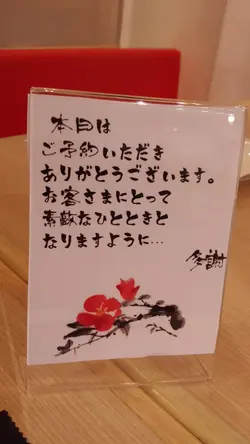 本日は
ご予約いただき
ありがとうございます。
お客さまにとって
素敵なひとときと
なりますように…
多謝